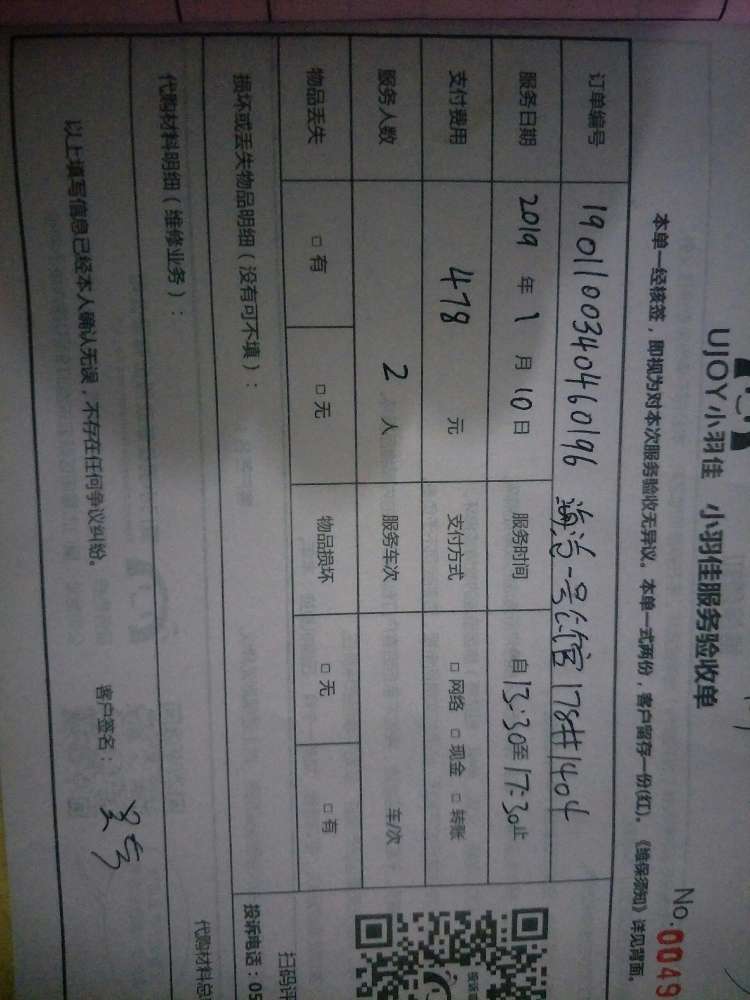 UJOY小羽佳 小羽佳服务验收单
No. 0049
本单一经核签，即视为对本次服务验收无异议。本单一式两份，客户留存一份(红)。《维保须知》详见背面。
订单编号 1901100340460196 海沧一号公馆178#1404
服务日期 2019 年 1 月 10 日 服务时间 自13:30至17:30止
支付费用 478 元 支付方式 □ 网络 □ 现金 □ 转账
服务人数 2 人 服务车次 车/次
物品丢失 □ 有 □ 无 物品损坏 □ 无 □ 有
损坏或丢失物品明细（没有可不填）：
扫码评
投诉电话：05
代购材料明细（维修业务）：
代购材料总
以上填写信息已经本人确认无误，不存在任何争议纠纷。
客户签名：